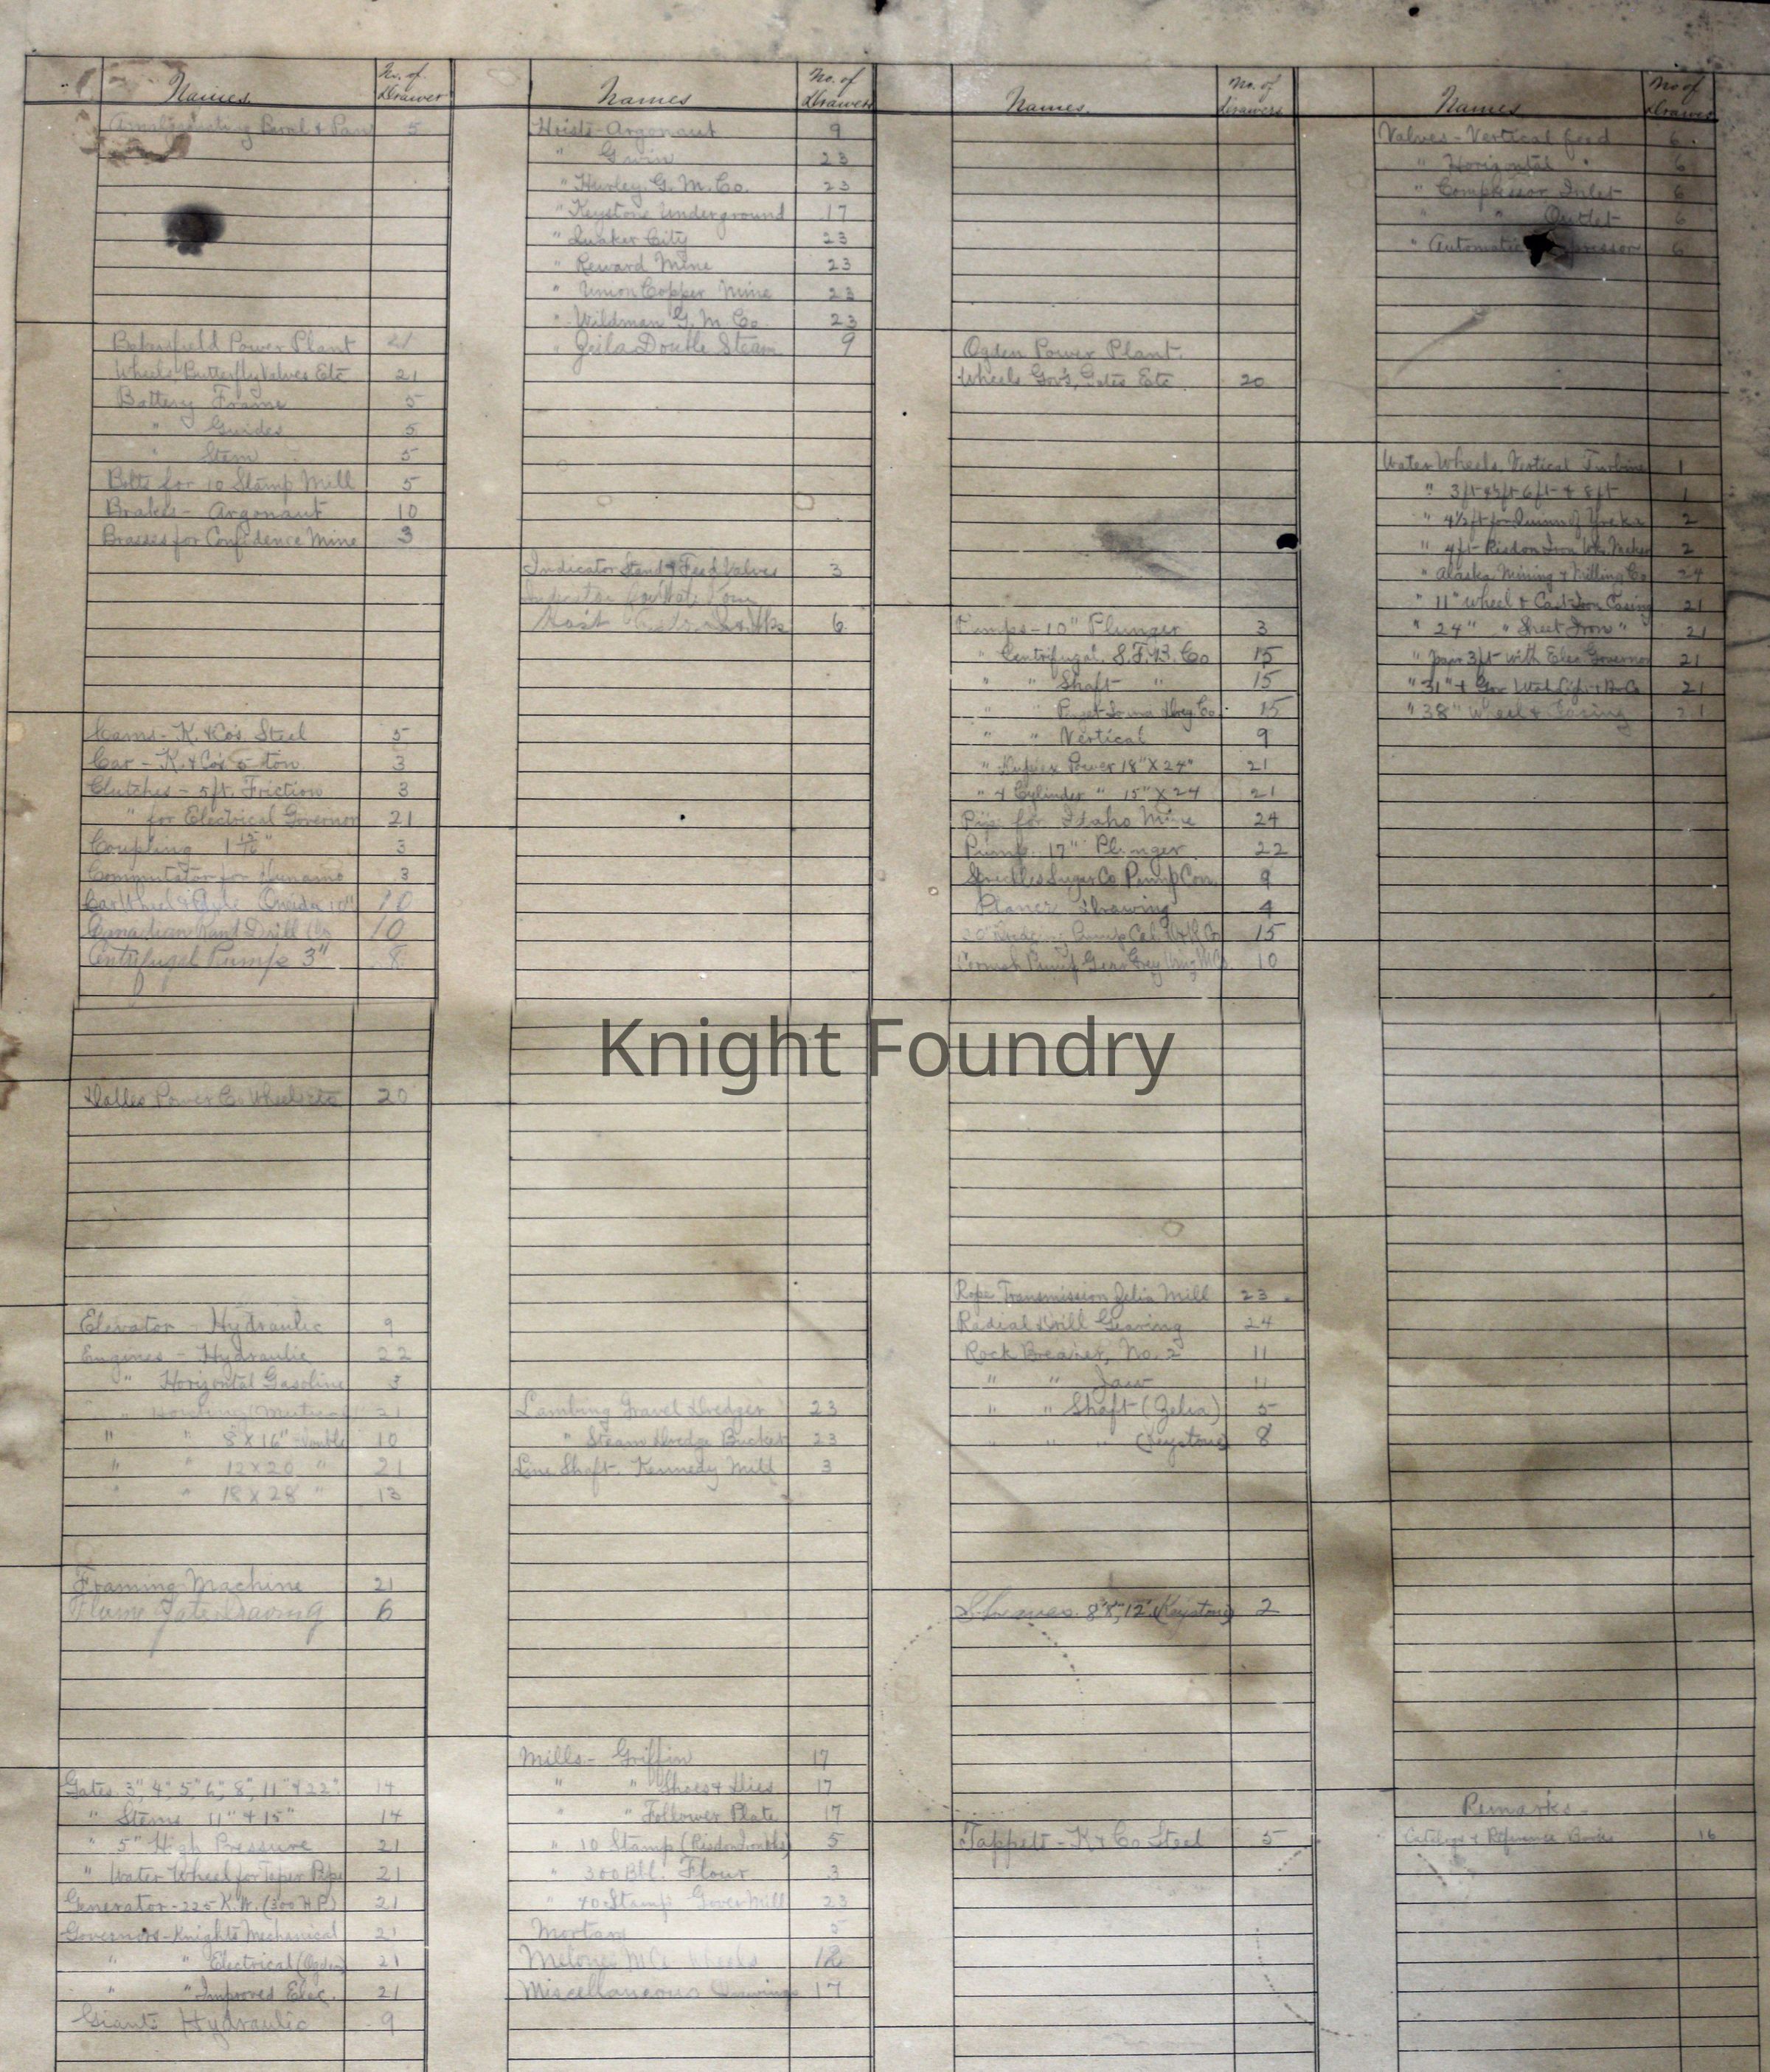 Names No. of Drawer
Amalgamating Pan 5
Bakersfield Power Plant 21
Wheels Butterfly Valves Etc 21
Battery Frame 5
" Guides 5
" Stem 5
Bolts for 10 Stamp Mill 5
Brakes - Argonaut 10
Brasses for Confidence Mine 3
Cams - K. & Co's Steel 5
Car - K. & Co's 5 ton 3
Clutches - 5 ft. Friction 3
" for Electrical Governor 21
Coupling 3
Commutator for Dynamo 3
Car Wheel & Axle Oneida 10" 10
Canadian Rand Drill Co 10
Centrifugal Pump 3" 8
Dalles Power Co Wheels etc 20
Elevator - Hydraulic 9
Engines - Hydraulic 22
" Horizontal Gasoline 3
" Hoisting 21
" " 8" X 16" double 10
" " 12 X 20 " 21
" " 18 X 28 " 13
Framing Machine 21
Flume Gate Drawing 6
Gates 3", 4", 5", 6", 8", 11" & 22" 14
" Stems 11" & 15" 14
" 5" High Pressure 21
" Water Wheel for Taper Pipe 21
Generator - 225 K.W. (300 H.P.) 21
Governors - Knights Mechanical 21
" " Electrical (Ogden) 21
" " Improved Elec. 21
Giants Hydraulic 9
Names No. of Drawers
Hoists - Argonaut 9
" Gwin 23
" Hurley G. M. Co. 23
" Keystone Underground 17
" Quaker City 23
" Reward Mine 23
" Union Copper Mine 23
" Wildman G. M. Co 23
" Zeila Double Steam 9
Indicator Stand & Feed Valves 3
Indicator
Hoist 6
Lambing Gravel Dredger 23
" Steam Dredge Bucket 23
Line Shaft. Kennedy Mill 3
Mills - Griffin 17
" " Shoes & Dies 17
" " Follower Plate 17
" 10 Stamp (Risdon Iron Wks) 5
" 300 Bbl. Flour 3
" 40 Stamp Gover Mill 23
Mortars 5
Melones M Co Wheels 12
Miscellaneous Drawings 17
Names. No. of Drawers
Ogden Power Plant.
Wheels Gov's, Gates Etc 20
Pumps - 10" Plunger 3
" Centrifugal. S. F. B. Co 15
" " Shaft " 15
" " Puget Sound Dreg. Co. 15
" " Vertical 9
" Duplex Power 18" X 24" 21
" 4 Cylinder " 15" X 24 21
Pipe for Idaho Mine 24
Pump. 17" Plunger 22
Spreckles Sugar Co Pump Con. 9
Planer Drawing 4
Pump Cal. 15
Pump Gear 10
Rope Transmission Zelia Mill 23
Radial Drill Gearing 24
Rock Breaker, No. 2 11
" " Jaw 11
" " Shaft (Zelia) 5
" " " (Keystone) 8
8", 12" (Keystone) 2
Tappets - K & Co Steel 5
Names No of Drawer
Valves - Vertical feed 6
" Horizontal " 6
" Compressor Inlet 6
" " Outlet 6
" Automatic 6
Water Wheels, Vertical Turbine 1
" 3 ft 6 ft & 8 ft 1
" 4½ ft for Yreka 2
" 4 ft - Risdon Iron Wks 2
" Alaska Mining & Milling Co 24
" 11" Wheel & Cast Iron Casing 21
" 24" " Sheet Iron " 21
" pair 3 ft with Elec Governor 21
" 31" & Gov Utah 21
" 38" Wheel & Casing 21
Remarks
Catalogs & Reference Books 16
Knight Foundry